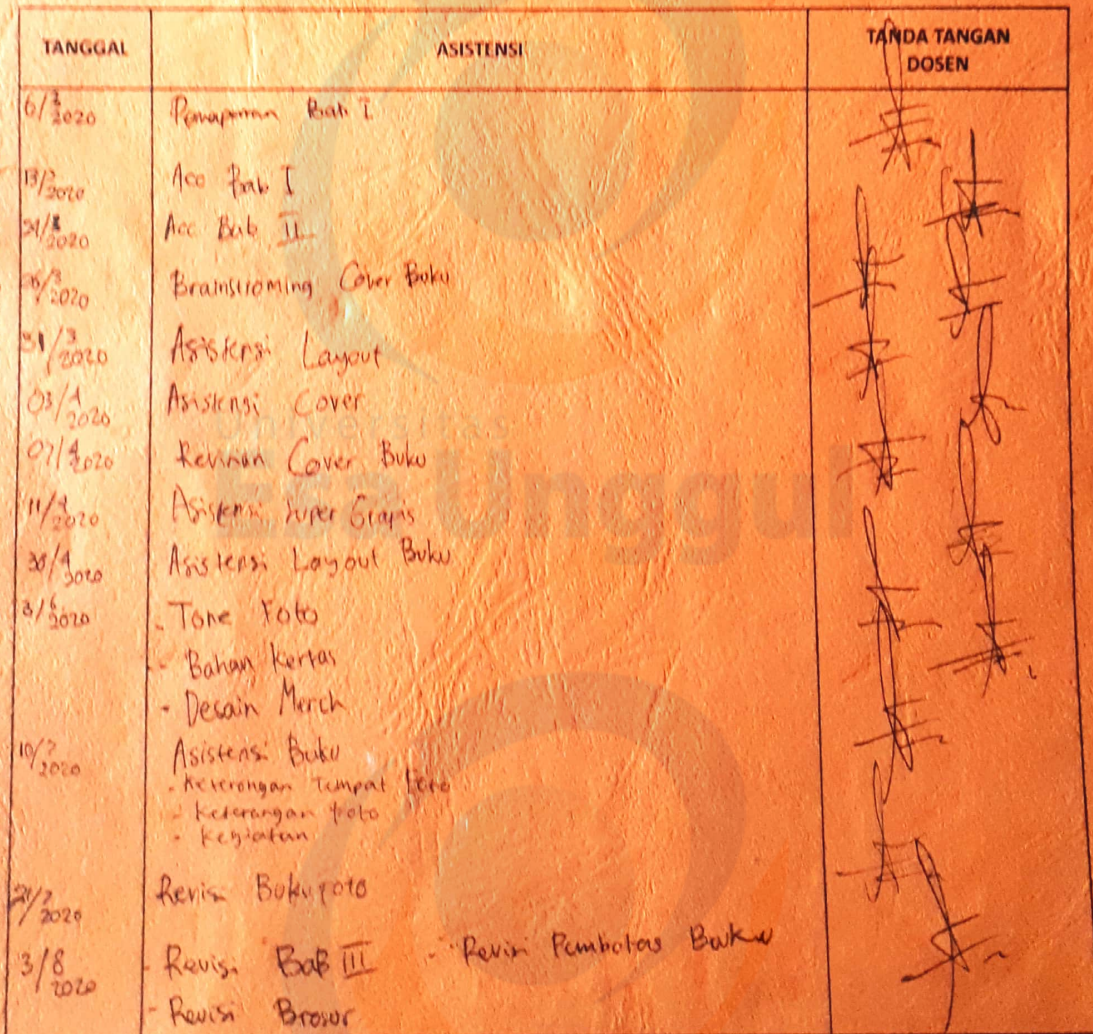 TANGGAL ASISTENSI TANDA TANGAN DOSEN
6/3 2020 Pemaparan Bab I
13/3 2020 Acc Bab I
2020 Acc Bab II
26/3 2020 Brainstroming Cover Buku
31/3 2020 Asistensi Layout
03/4 2020 Asistensi Cover
07/4 2020 Revisian Cover Buku
11/4 2020 Asistensi Super Grapis
30/4 2020 Asistensi Layout Buku
3/6 2020 - Tone Foto
- Bahan Kertas
- Desain Merch
10/7 2020 Asistensi Buku
- Keterangan Tempat Foto
- Keterangan foto
- Kegiatan
2020 Revisi Buku foto
3/8 2020 - Revisi BaB III - Revisi Pembatas Buku
- Revisi Brosur
Universitas
Esa Unggul